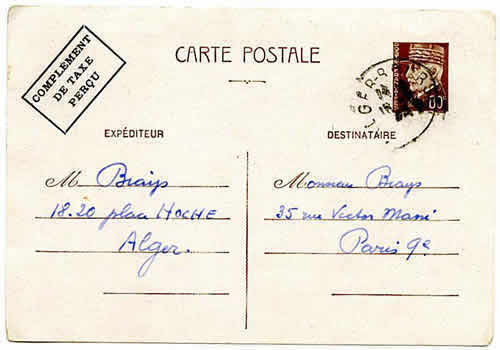 COMPLEMENT
DE TAXE
PERÇU
CARTE POSTALE
80
EXPÉDITEUR
M. Brays
18.20 place HOCHE
Alger.
DESTINATAIRE
Monsieur Brays
35 rue Victor Massé
Paris 9e